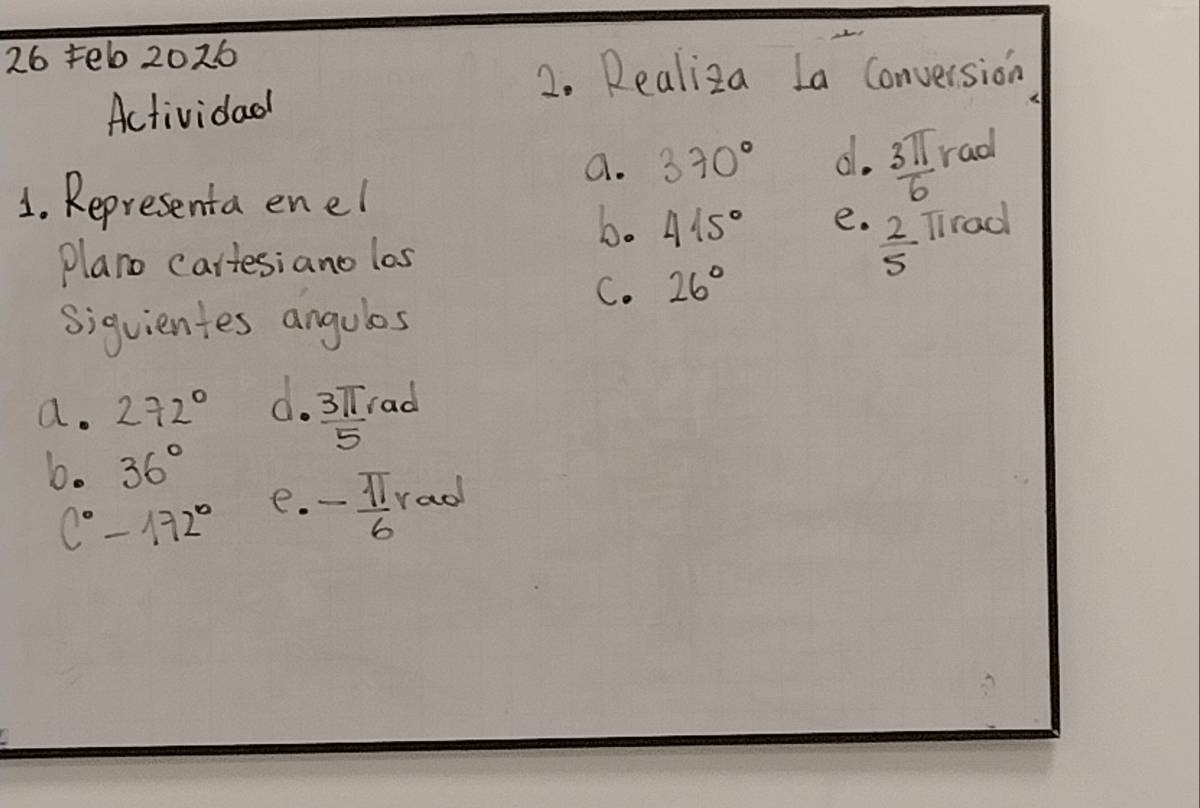 26 Feb 2026
Actividad
1. Representa en el
plano cartesiano los
siguientes ángulos
a. 272°
b. 36°
C° -172°
d. 3π/5 rad
e. -π/6 rad
2. Realiza La Conversión
a. 370°
b. 415°
c. 26°
d. 3π/6 rad
e. 2/5 π rad